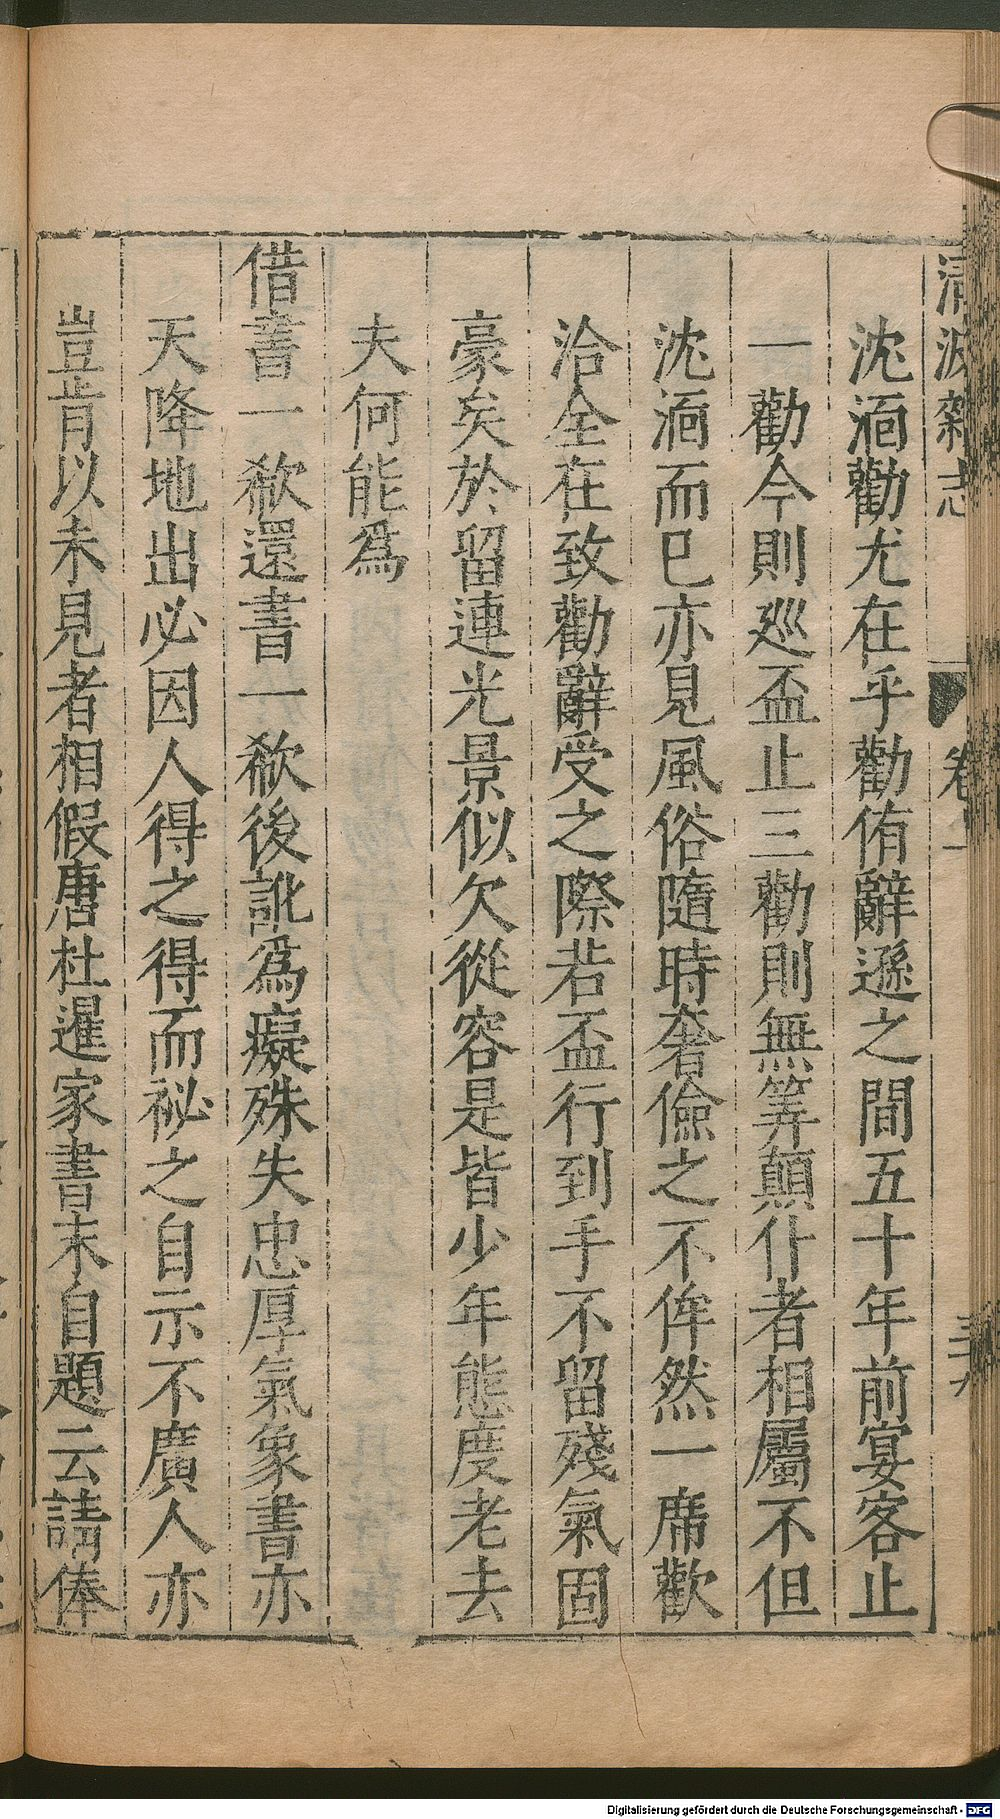 清波雜志 卷一
沈湎勸尤在乎勸侑辭遜之間五十年前宴客止
一勸今則巡盃止三勸則無筭顛仆者相屬不但
沈湎而已亦見風俗隨時奢儉之不侔然一席歡
洽全在致勸辭受之際若盃行到手不留殘氣固
豪矣於留連光景似欠從容是皆少年態度老去
夫何能爲
借書一欷還書一欷後訛爲癡殊失忠厚氣象書亦
天降地出必因人得之得而祕之自示不廣人亦
豈肯以未見者相假唐杜暹家書末自題云請俸
Digitalisierung gefördert durch die Deutsche Forschungsgemeinschaft - DFG